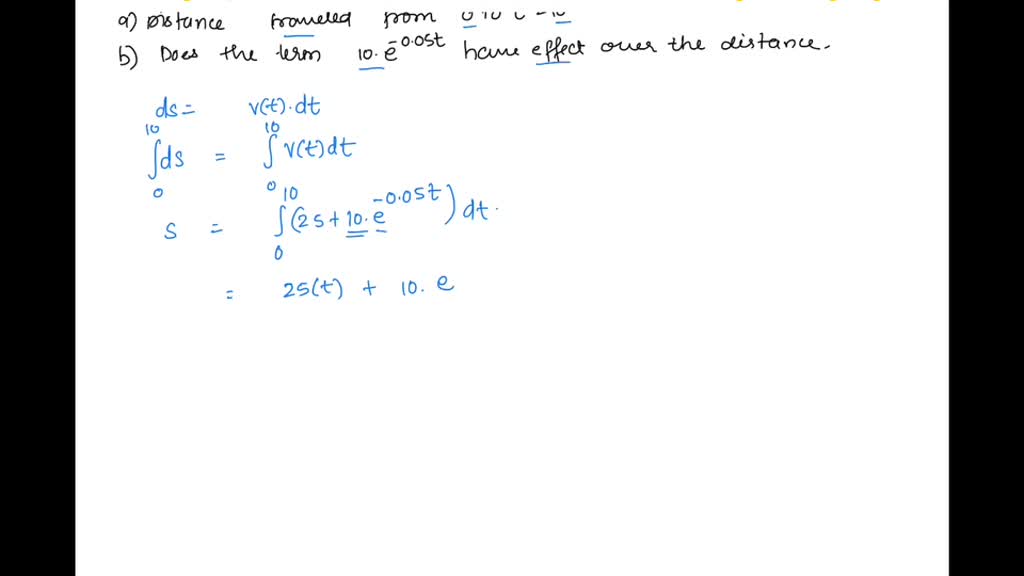 a) Distance traveled from 0 to t = 10
b) Does the term 10.e^-0.05t have effect over the distance.
ds = v(t).dt
10 10
∫ds = ∫ v(t)dt
0 0
10
s = ∫(25 + 10.e^-0.05t) dt.
0
= 25(t) + 10. e